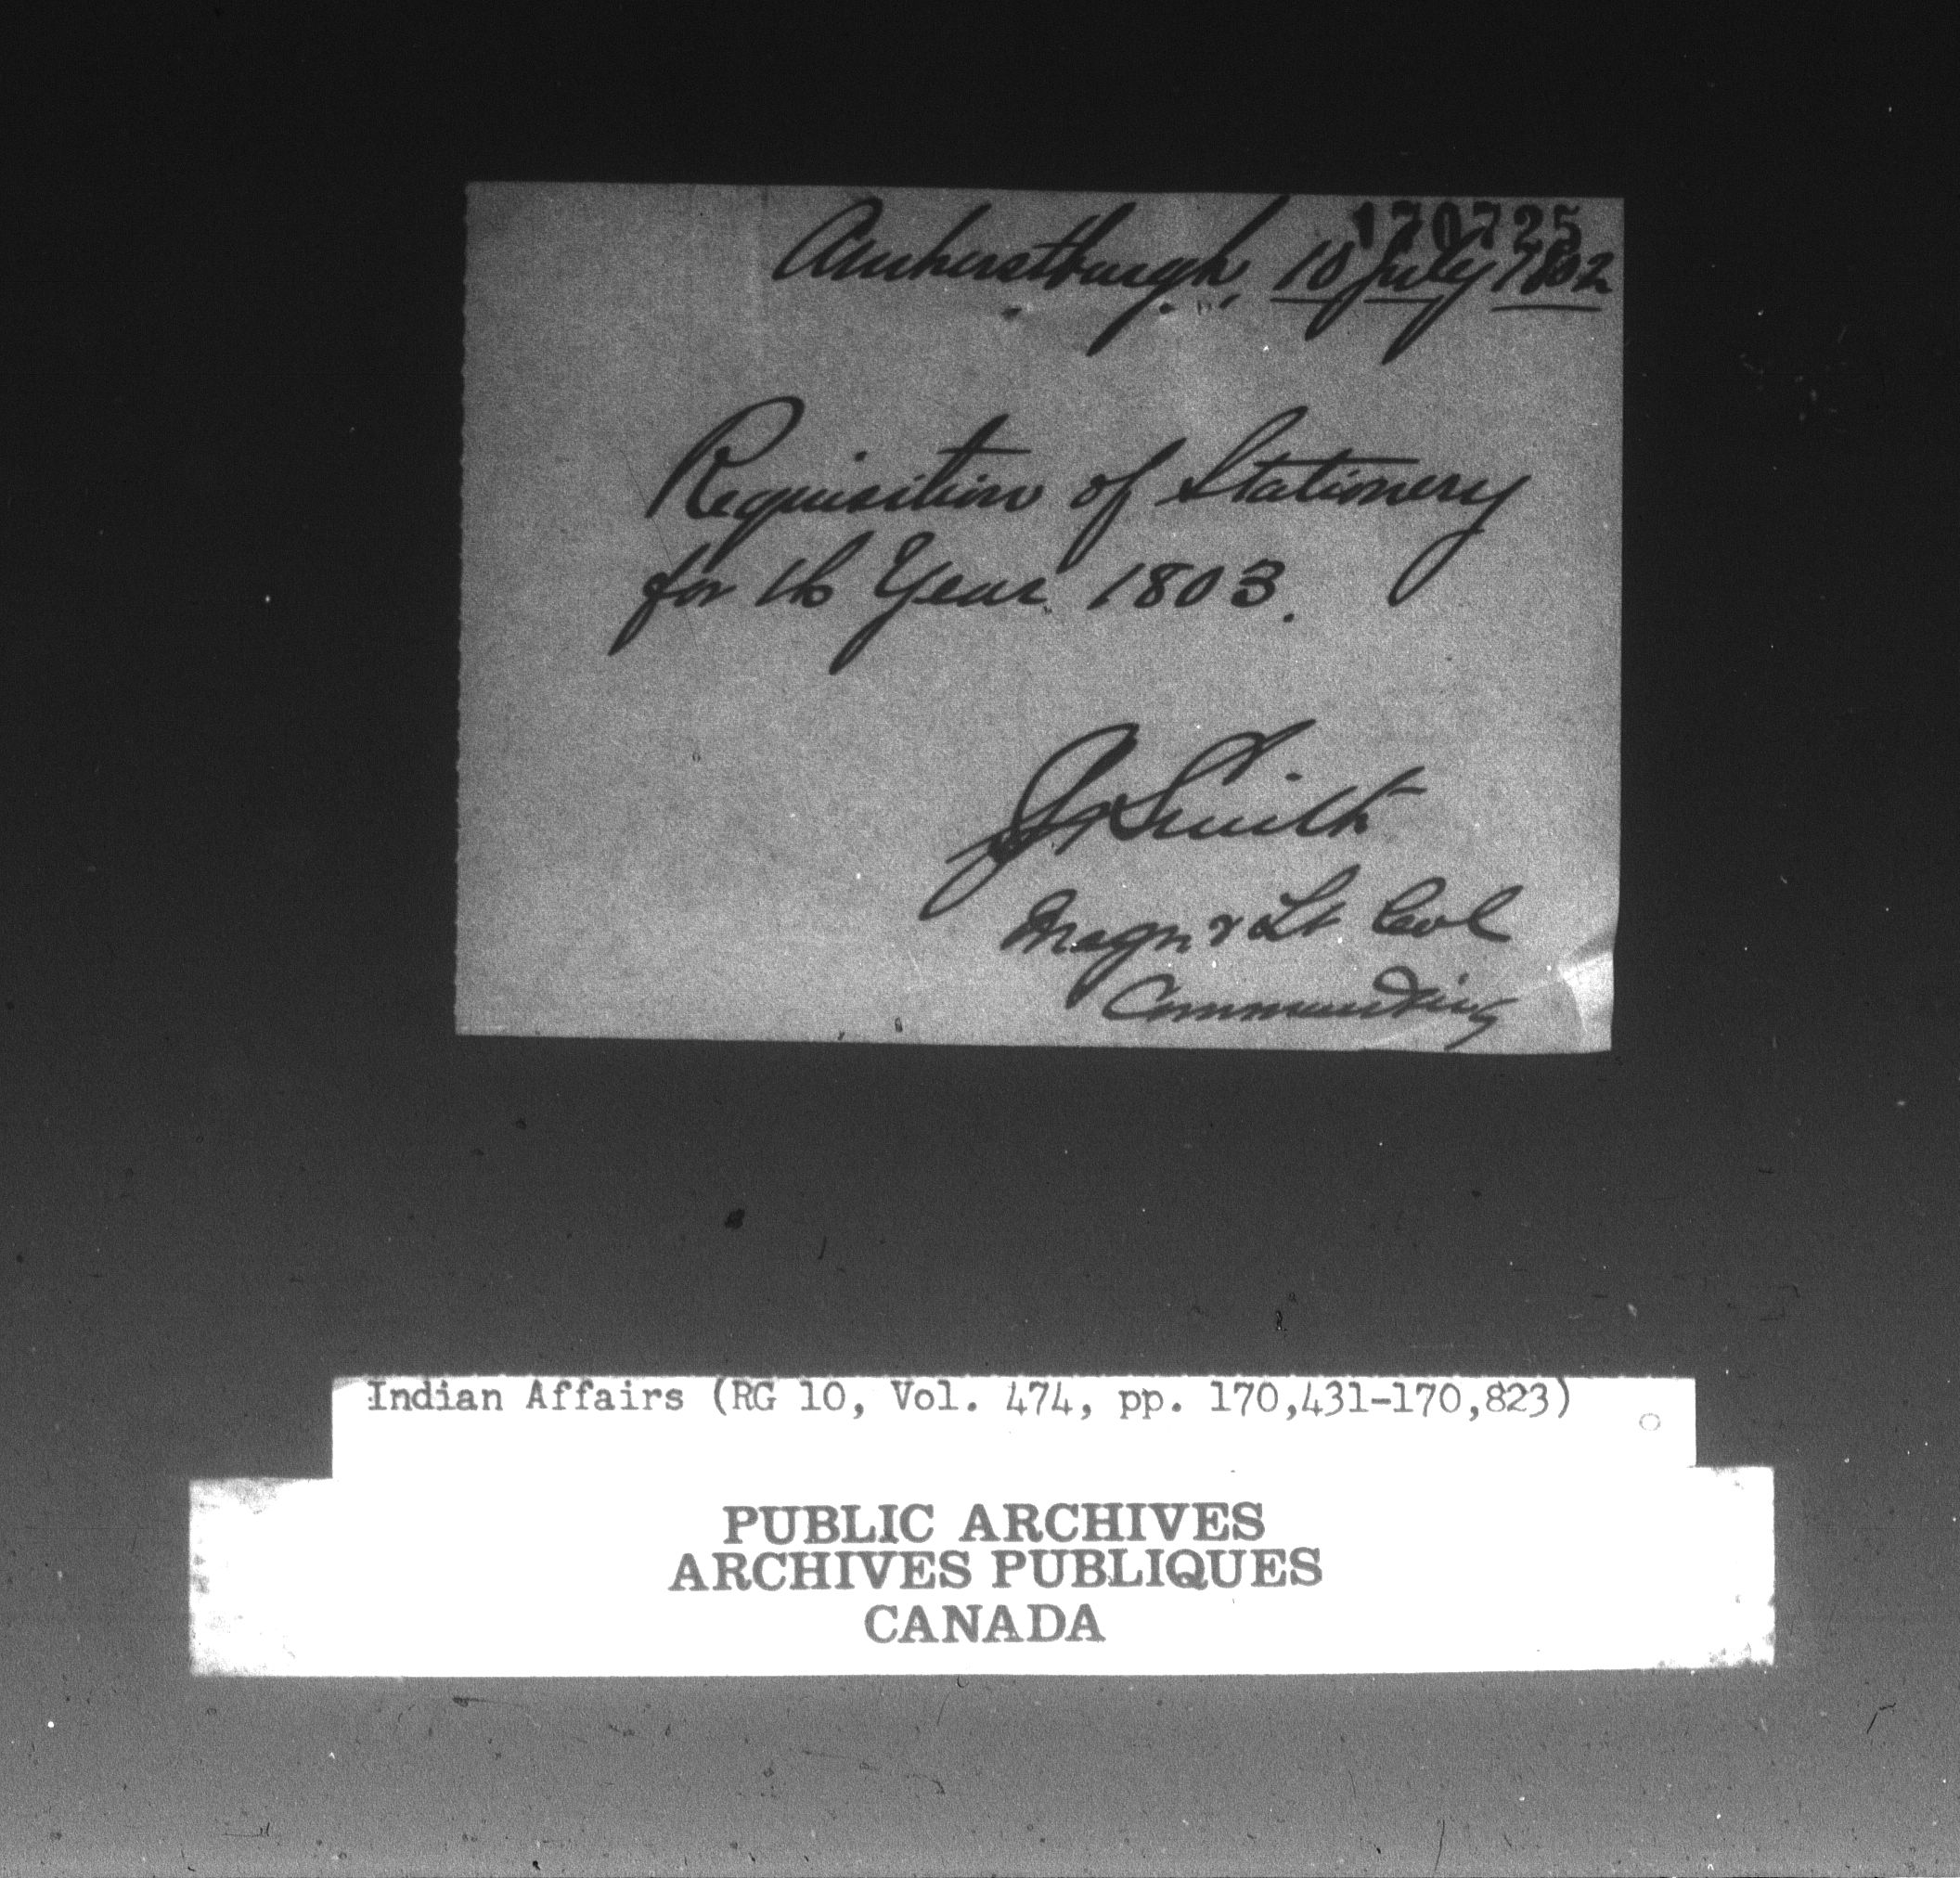 170725
Amherstburgh, 10 July 1802
Requisition of Stationery
for the Year 1803.
Smith
& Lt Col
Commanding
Indian Affairs (RG 10, Vol. 474, pp. 170,431-170,823)
PUBLIC ARCHIVES
ARCHIVES PUBLIQUES
CANADA